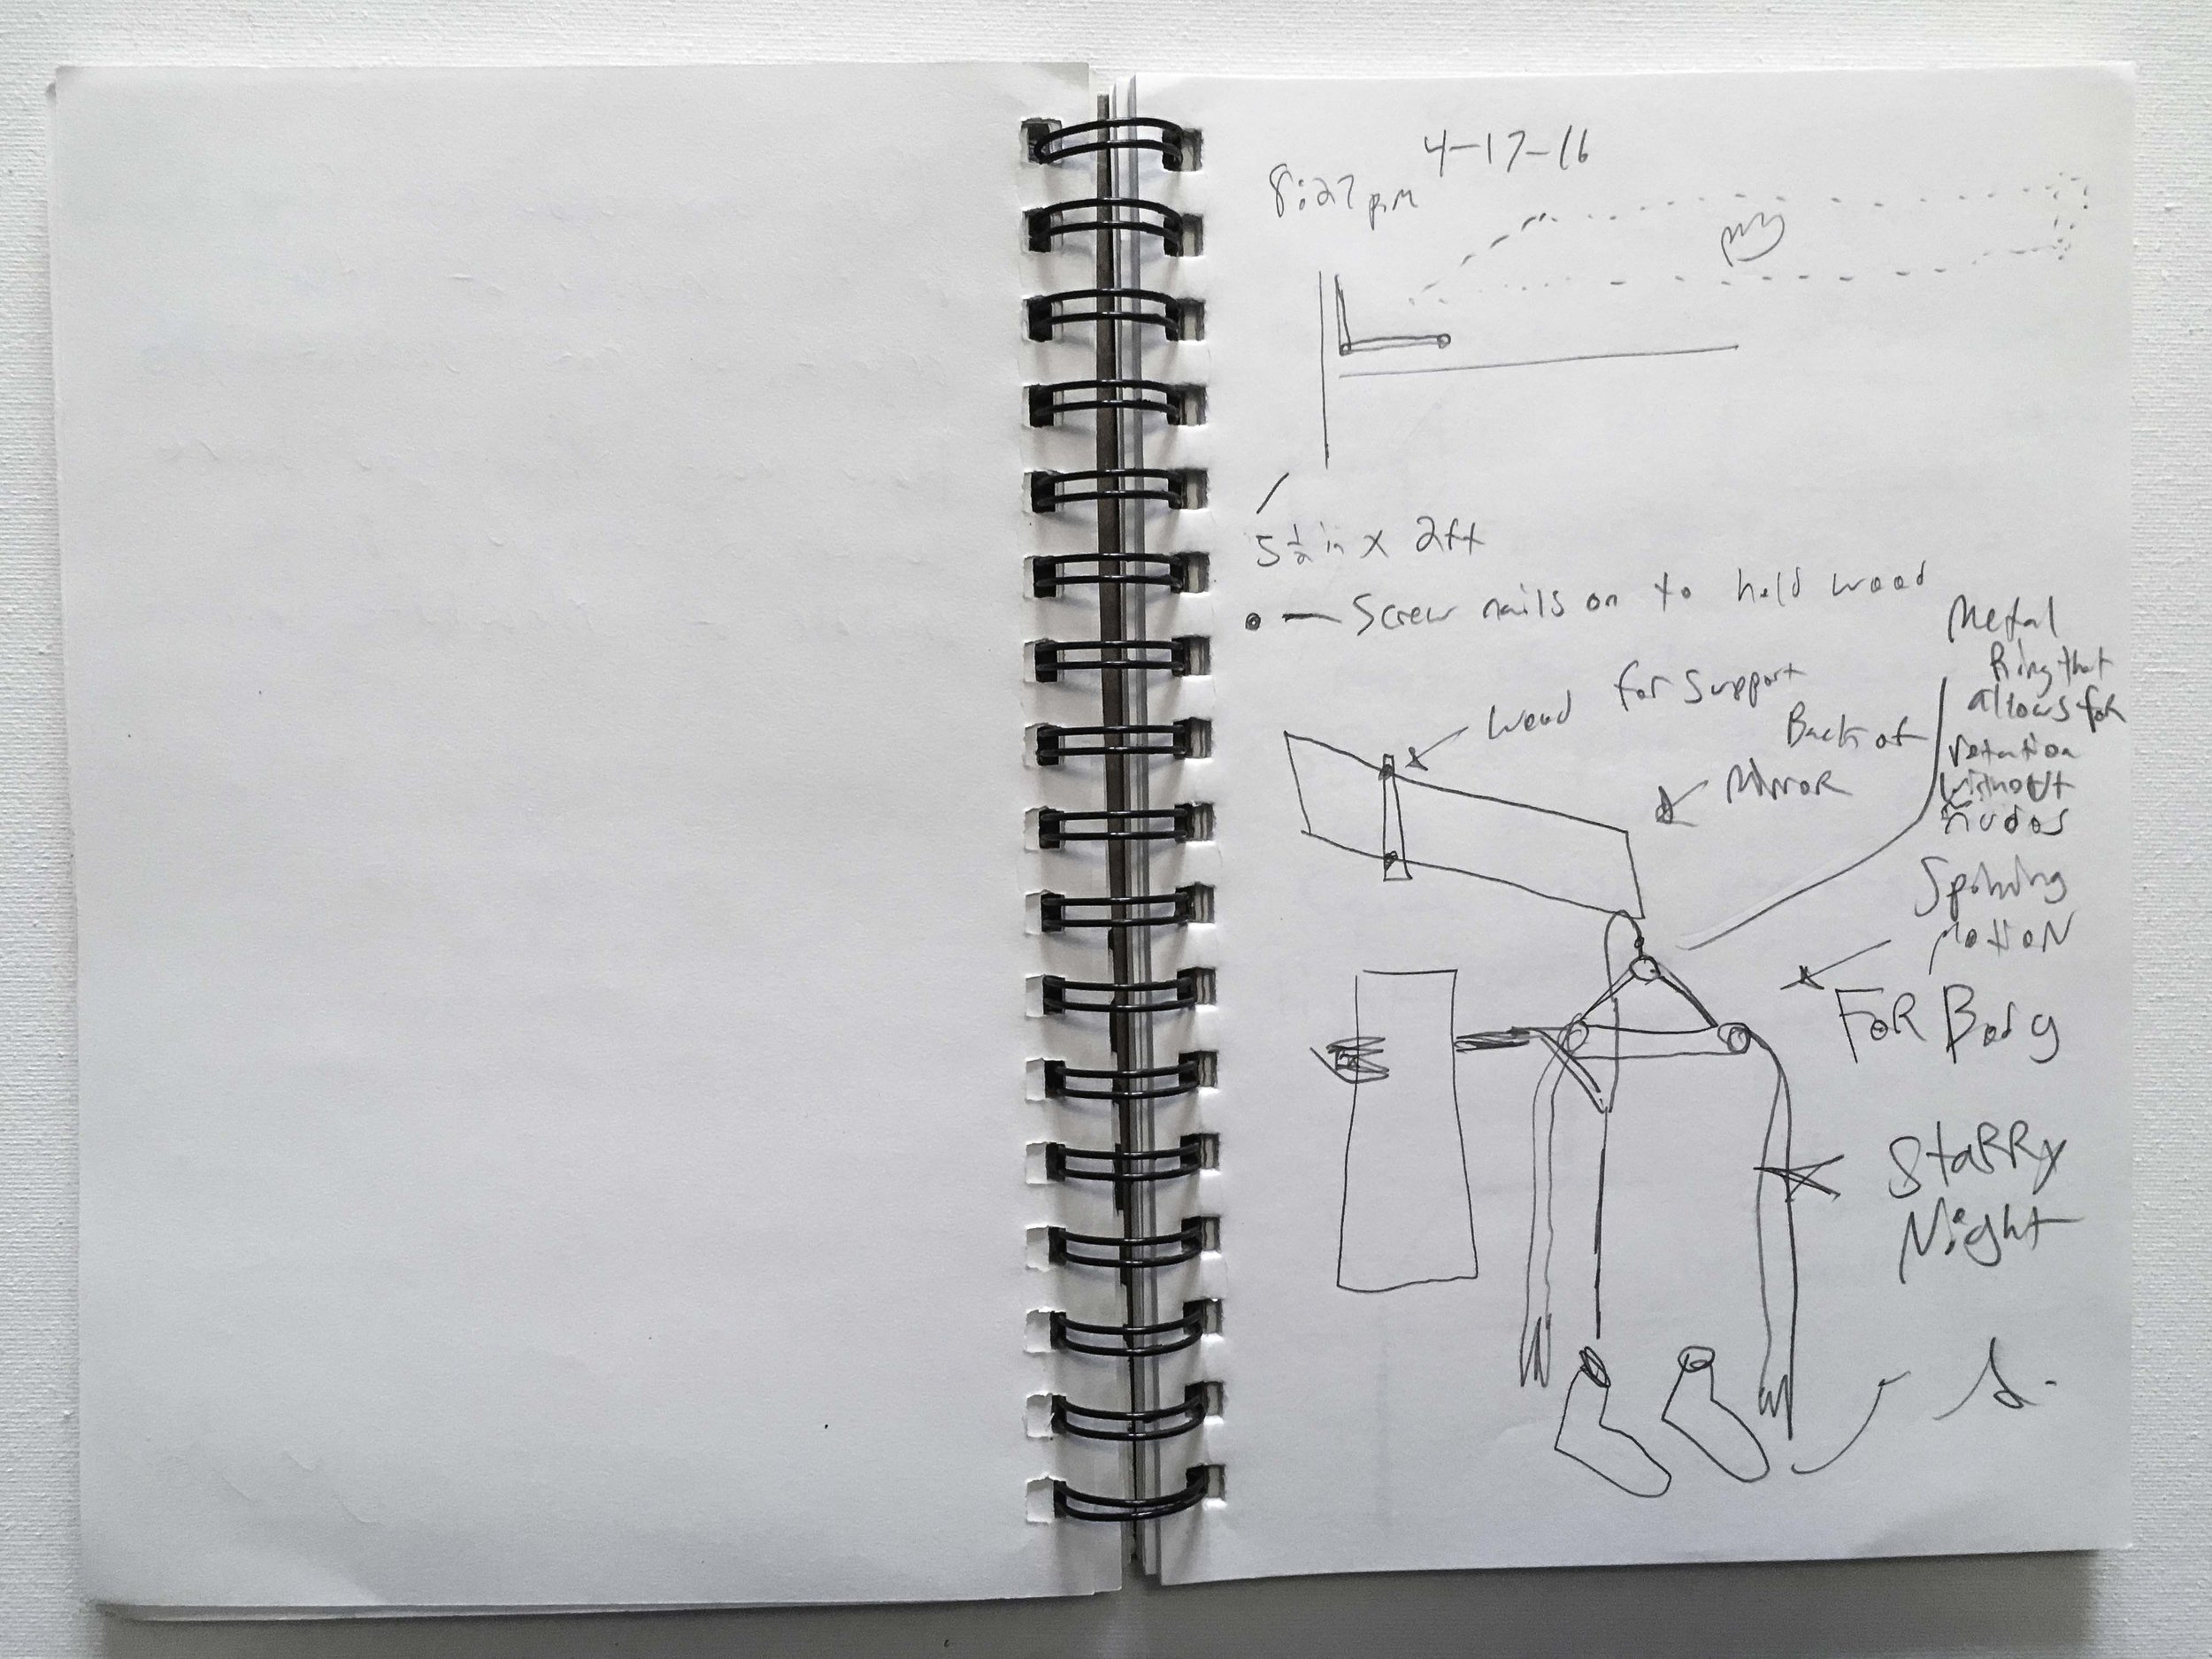 4-17-16
8:27pm
5 1/2 in x 2ft
Screw nails on to hold wood
Wood for Support
Back of
Mirror
Metal
Ring that
allows for
rotation
without
nudos
Spinning
Motion
FOR Body
StaRRy
Night